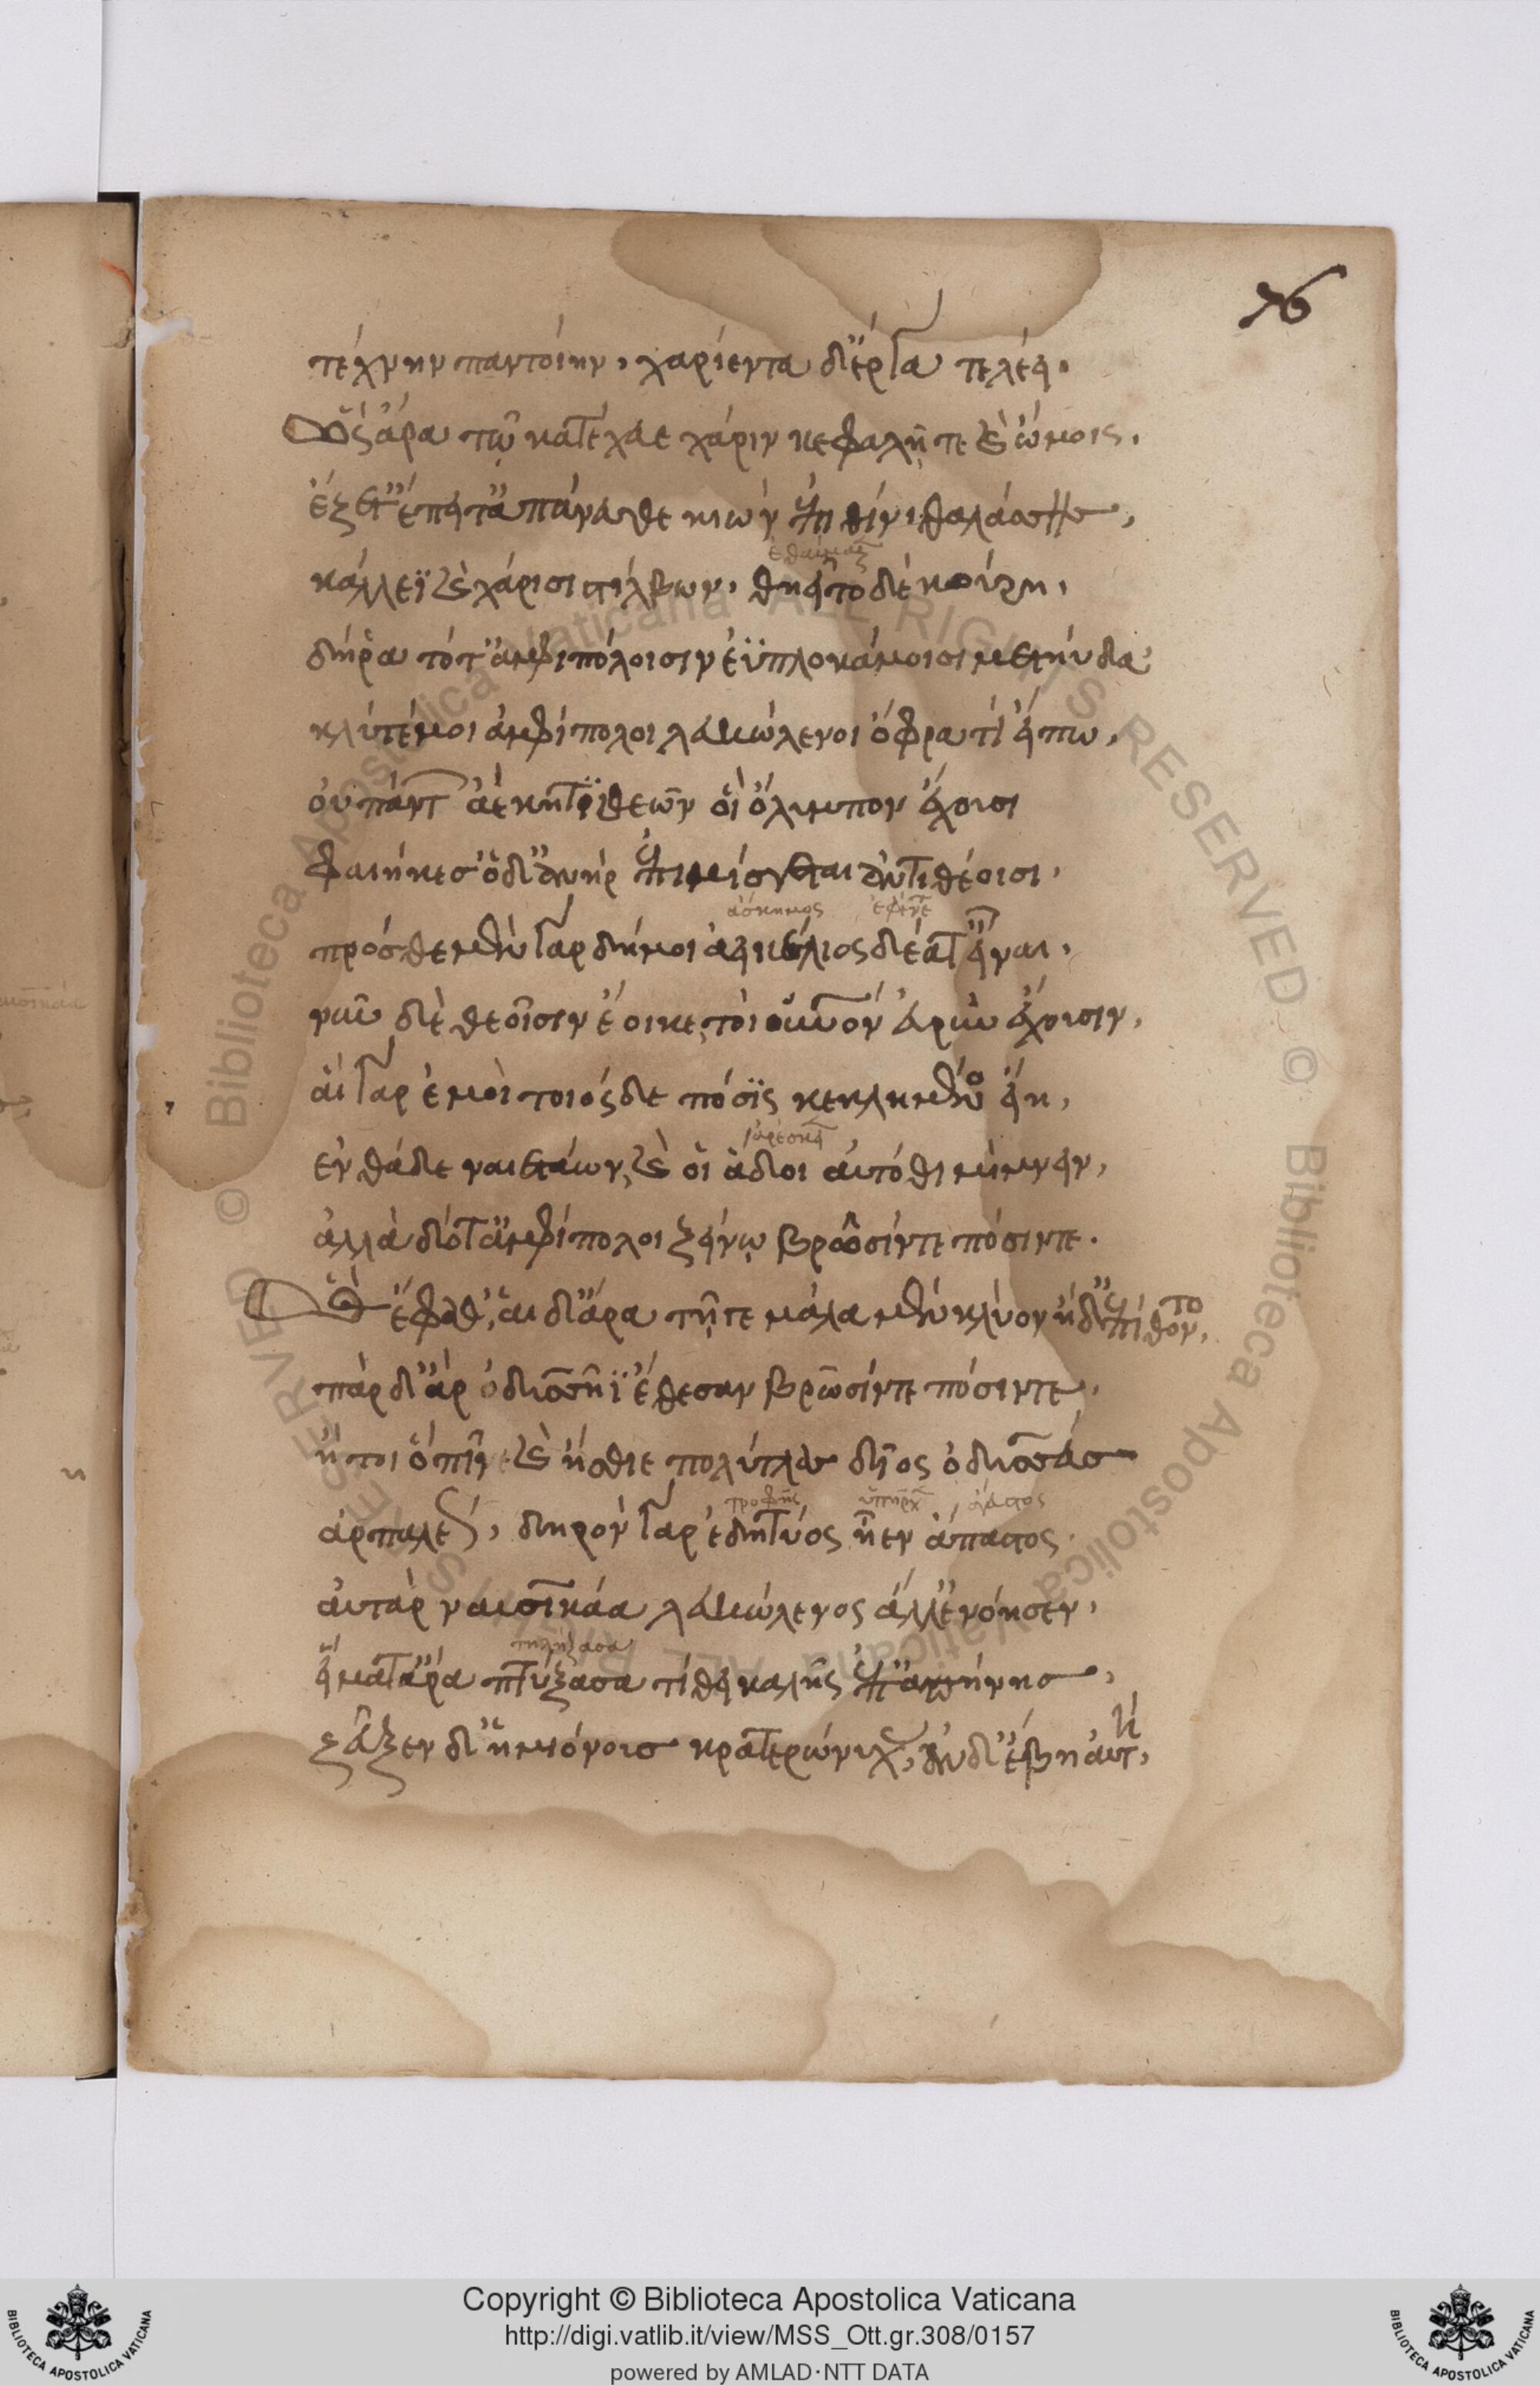 76
τέχνην παντοίην, χαρίεντα δ' ἔργα τελέει.
ὣς ἄρα τῷ κατέχευε χάριν κεφαλῇ τε καὶ ὤμοις.
ἕζετ' ἔπειτ' ἀπάνευθε κιὼν ἐπὶ θῖνι θαλάσσης,
κάλλεϊ καὶ χάρισι στίλβων. θηεῖτο δὲ κούρη,
δή ῥα τότ' ἀμφιπόλοισιν ἐϋπλοκάμοισι μετηύδα
κλῦτέ μοι ἀμφίπολοι λευκώλενοι ὄφρα τί εἴπω,
οὐ πάντ' ἀέκητι θεῶν οἳ ὄλυμπον ἔχουσι
φαιήκεσ' ὅδ' ἀνὴρ ἐπιμίσγεται ἀντιθέοισι.
ἀάσχημος ἐφαίνετο
πρόσθε μὲν γὰρ δή μοι ἀεικέλιος δέατ' εἶναι,
νῦν δὲ θεοῖσιν ἔοικε, τοὶ οὐρανὸν εὐρὺν ἔχουσιν,
αἲ γὰρ ἐμοὶ τοιόσδε πόσις κεκλημένος εἴη,
ἀρέσκει
ἐνθάδε ναιετάων, καὶ οἱ ἅδοι αὐτόθι μίμνειν,
ἀλλὰ δότ' ἀμφίπολοι ξείνῳ βρῶσίν τε πόσιν τε.
ὣς ἔφαθ', αἱ δ' ἄρα τῆς τε μάλα μὲν κλύον ἠδ' ἐπίθοντο,
πὰρ δ' ἄρ ὀδυσσῆϊ ἔθεσαν βρῶσίν τε πόσιν τε,
ἤτοι ὁ πῖνε καὶ ἦσθε πολύτλας δῖος ὀδυσσεύσ
τροφῆς ὑπῆρχεν ἄγευστος
ἁρπαλέως, δηρὸν γὰρ ἐδητύος ἦεν ἄπαστος.
αὐτὰρ ναυσικάα λευκώλενος ἄλλ' ἐνόησεν,
εἵματ' ἄρα πτύξασα τίθει καλῆς ἐπ' ἀπήνησ,
ζεῦξεν δ' ἡμιόνουσ κρατερώνυχας, ἂν δ' ἔβη αὐτή,
Copyright © Biblioteca Apostolica Vaticana
http://digi.vatlib.it/view/MSS_Ott.gr.308/0157
powered by AMLAD·NTT DATA